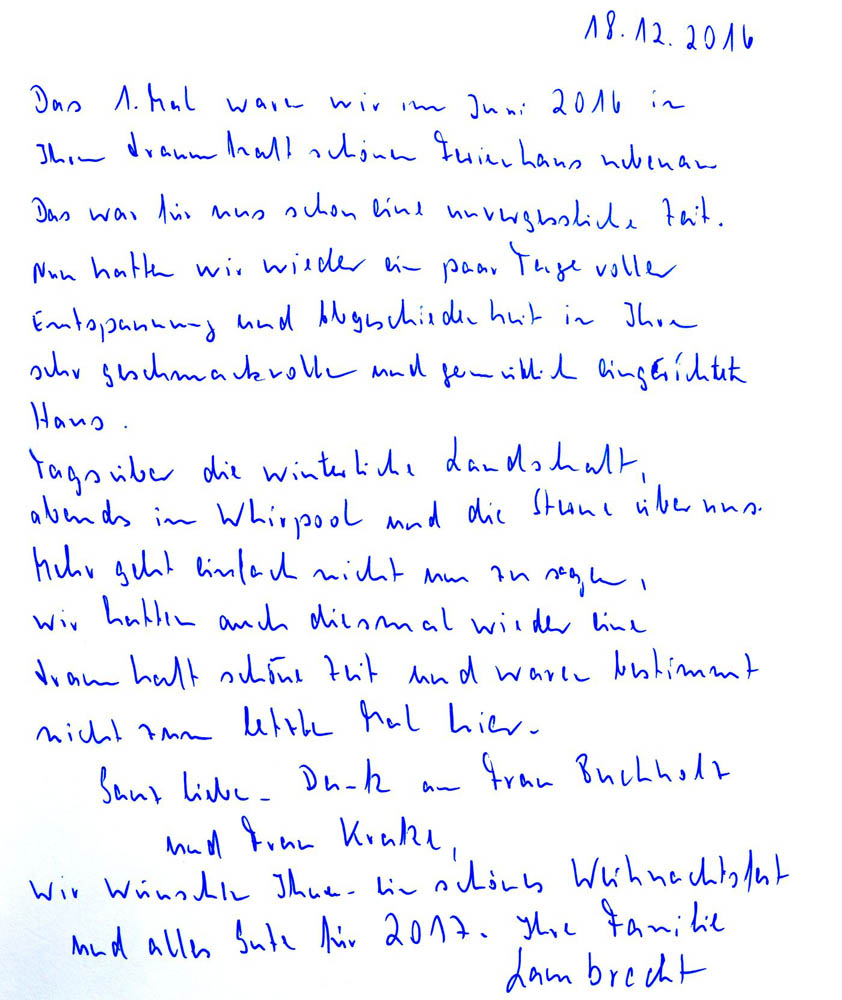 18.12.2016
Das 1. Mal waren wir im Juni 2016 in
Ihrem traumhaft schönen Ferienhaus nebenan
Das war für uns schon eine unvergessliche Zeit.
Nun hatten wir wieder ein paar Tage voller
Entspannung und Abgeschiedenheit in Ihrem
sehr geschmackvollen und gemütlich eingerichteten
Haus.
Tagsüber die winterliche Landschaft,
abends im Whirpool und die Sterne über uns.
Mehr geht einfach nicht um zu sagen,
wir hatten auch diesmal wieder eine
traumhaft schöne Zeit und waren bestimmt
nicht zum letzten Mal hier.
Ganz lieben Dank an Frau Buchholz
und Frau Krake,
Wir wünschen Ihnen ein schönes Weihnachtsfest
und alles Gute für 2017. Ihre Familie
Lambrecht